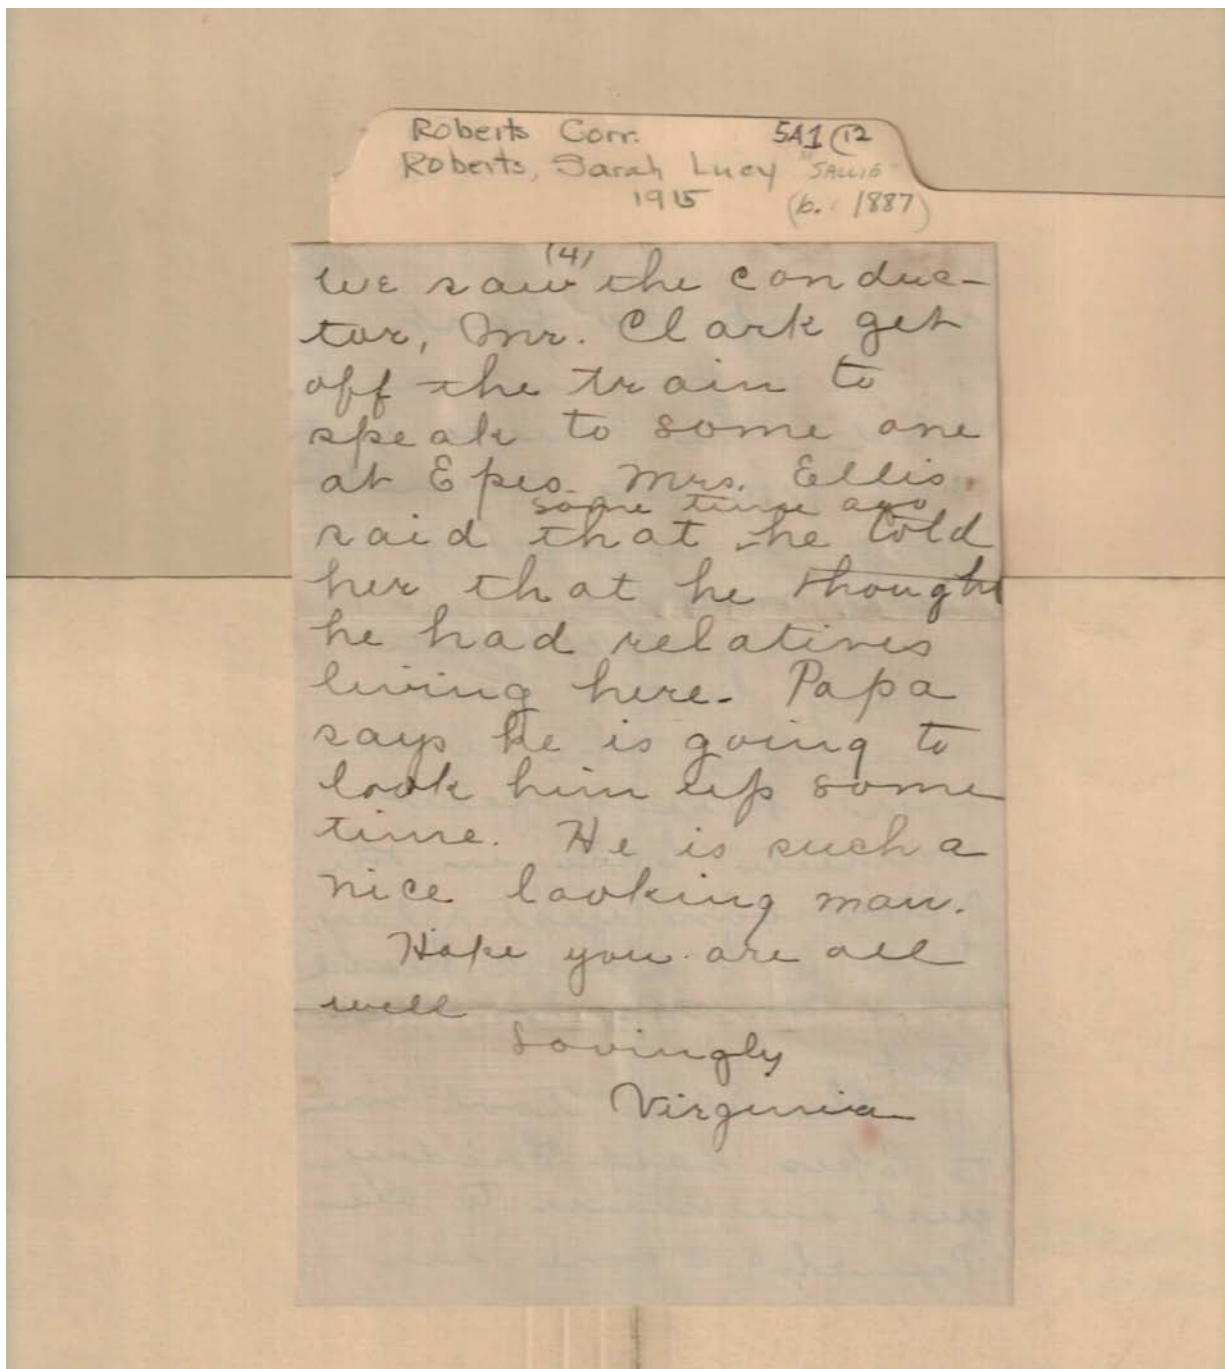 Roberts Corr. 5A1(12
Roberts, Sarah Lucy "SALLIE"
1915 (b. 1887)
(4)
we saw the conduc-
tor, Mr. Clark get
off the train to
speak to some one
at Epes. Mrs. Ellis
some time ago
said that he told
her that he thought
he had relatives
living here. Papa
says he is going to
look him up some
time. He is such a
nice looking man.
Hope you are all
well
Lovingly
Virginia